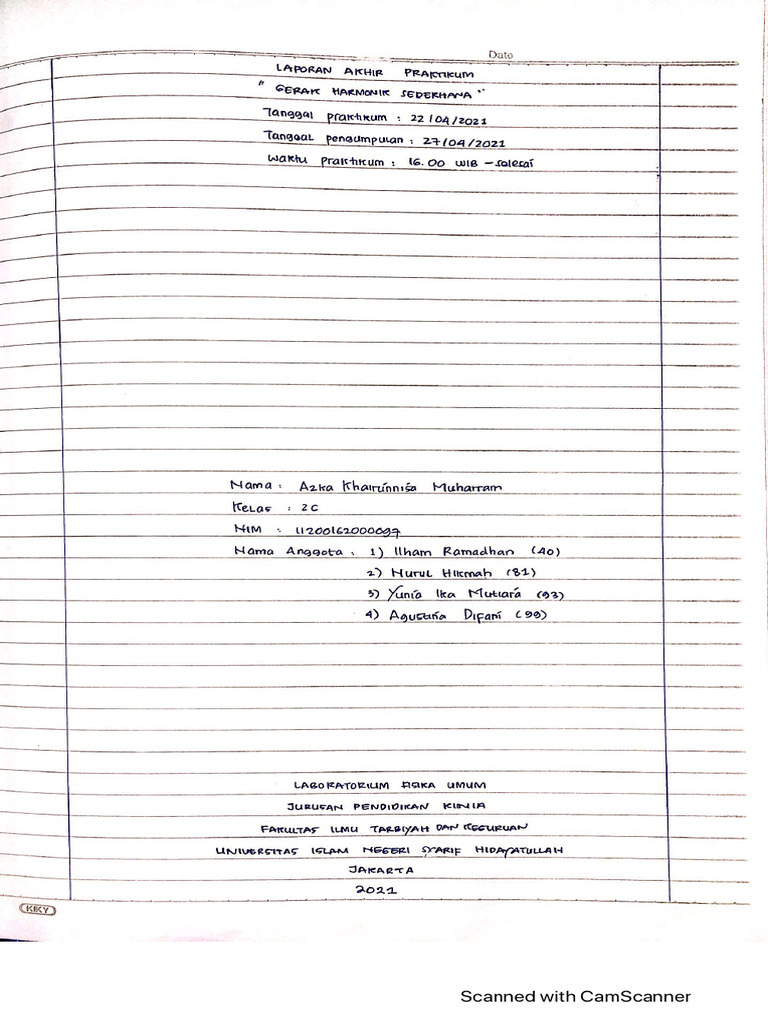 Date
LAPORAN AKHIR PRAKTIKUM
" GERAK HARMONIK SEDERHANA "
Tanggal praktikum : 22/04/2021
Tanggal pengumpulan : 27/04/2021
Waktu praktikum : 16.00 WIB - selesai
Nama : Azka Khairunnisa Muharram
Kelas : 2C
NIM : 11200162000097
Nama Anggota : 1) Ilham Ramadhan (40)
2) Nurul Hikmah (81)
3) Yunia Ika Mutiara (93)
4) Agustina Difani (99)
LABORATORIUM FISIKA UMUM
JURUSAN PENDIDIKAN KIMIA
FAKULTAS ILMU TARBIYAH DAN KEGURUAN
UNIVERSITAS ISLAM NEGERI SYARIF HIDAYATULLAH
JAKARTA
2021
KIKY
Scanned with CamScanner